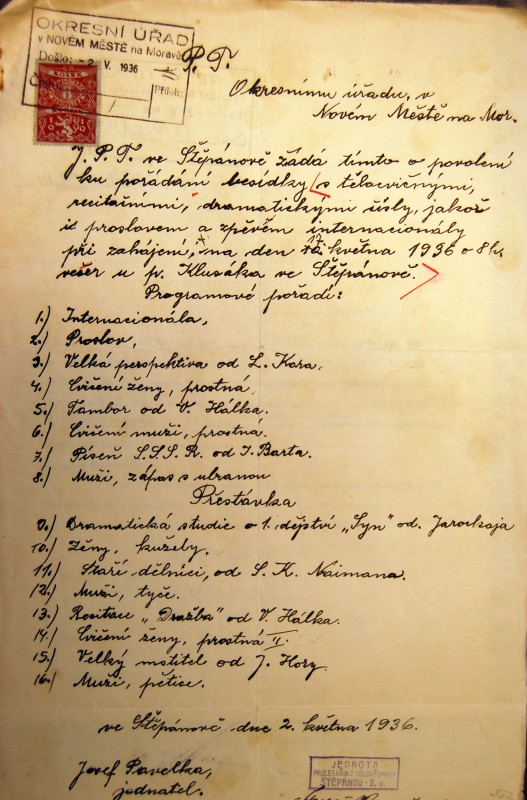 OKRESNÍ ÚŘAD
v NOVÉM MĚSTĚ na Moravě
Došlo: -2. V. 1936
Příloh:
P. T.
Okresnímu úřadu, v
Novém Městě na Mor.
J. P. T. ve Štěpánově žádá tímto o povolení
ku pořádání besídky s tělocvičnými,
recitačními, dramatickými čísly, jakož
i proslovem a zpěvem internacionály
při zahájení, na den 17. května 1936 o 8 h.
večer u p. Klusáka ve Štěpánově.
Programové pořadí:
1.) Internacionála,
2.) Proslov,
3.) Velká perspektiva od L. Kara.
4.) Cvičení ženy, prostná.
5.) Tambor od V. Hálka.
6.) Cvičení muži, prostná.
7.) Píseň S.S.S.R. od J. Barta.
8.) Muži, zápas s ubranou
Přestávka
9.) Dramatická studie o 1. dějství „Syn" od. Jarockaja
10.) Ženy, kužely.
11.) Staří dělníci, od S. K. Naimana.
12.) Muži, tyče.
13.) Recitace „Dražba" od V. Hálka.
14.) Cvičení ženy, prostná II.
15.) Velký mstitel od J. Hory.
16.) Muži, pětice.
ve Štěpánově dne 2. května 1936.
Josef Pavelka,
jednatel.
JEDNOTA
PROLETÁŘSKÉ TĚLOVÝCHOVY
ŠTĚPÁNOV